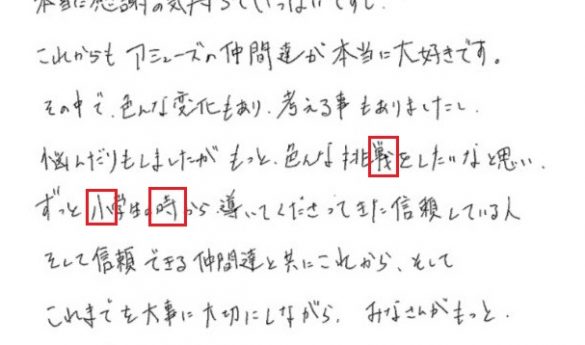 本当に感謝の気持ちでいっぱいですし.
これからも アミューズの仲間達が 本当に大好きです。
その中で、色んな変化もあり、考える事もありましたし.
悩んだりもしましたが もっと、色んな挑戦をしたいなと思い、
ずっと小学生の時から 導いてくださってきた信頼している人
そして信頼できる仲間達と共にこれから、そして
これまでを大事に大切にしながら、みなさんがもっと.